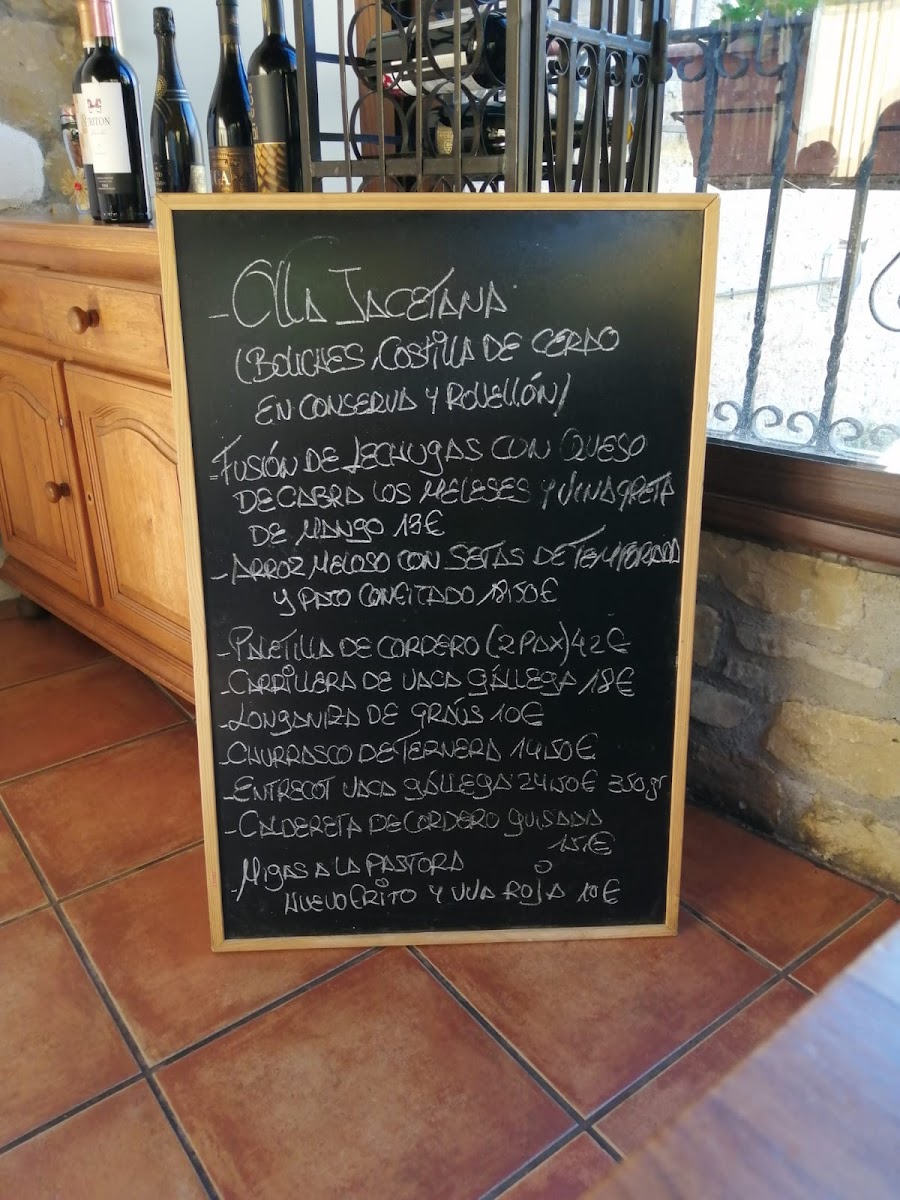 TRITON
- Olla Jacetana
(Boliches, Costilla de Cerdo
en Conserva y Rovellón)
- Fusión de Lechugas con Queso
de cabra Los Meleses y Vinagreta
de Mango 13€
- Arroz Meloso con Setas de Temporada
y Pato Confitado 18'50€
- Paletilla de Cordero (2 Pax) 42€
- Carrillera de Vaca Gállega 18€
- Longaniza de Graus 10€
- Churrasco de Ternera 14'50€
- Entrecot Vaca Gállega 24'50€ 350gr
- Caldereta de Cordero Guisada
15'€
- Migas a la Pastora
Huevo Frito y Uva Roja 10€